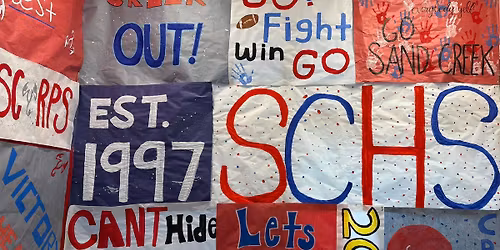 CREEK
OUT!
GO!
Fight
Win
GO
everybody yell
GO
SAND CREEK
SC RPS
EST.
1997
SCHS
VICTOR
CANT Hide
Lets
20